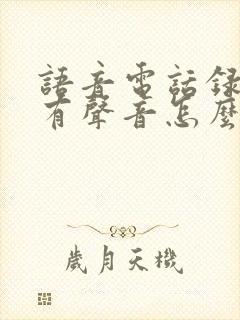 語音電話錄
有聲音怎麼
歲月天機